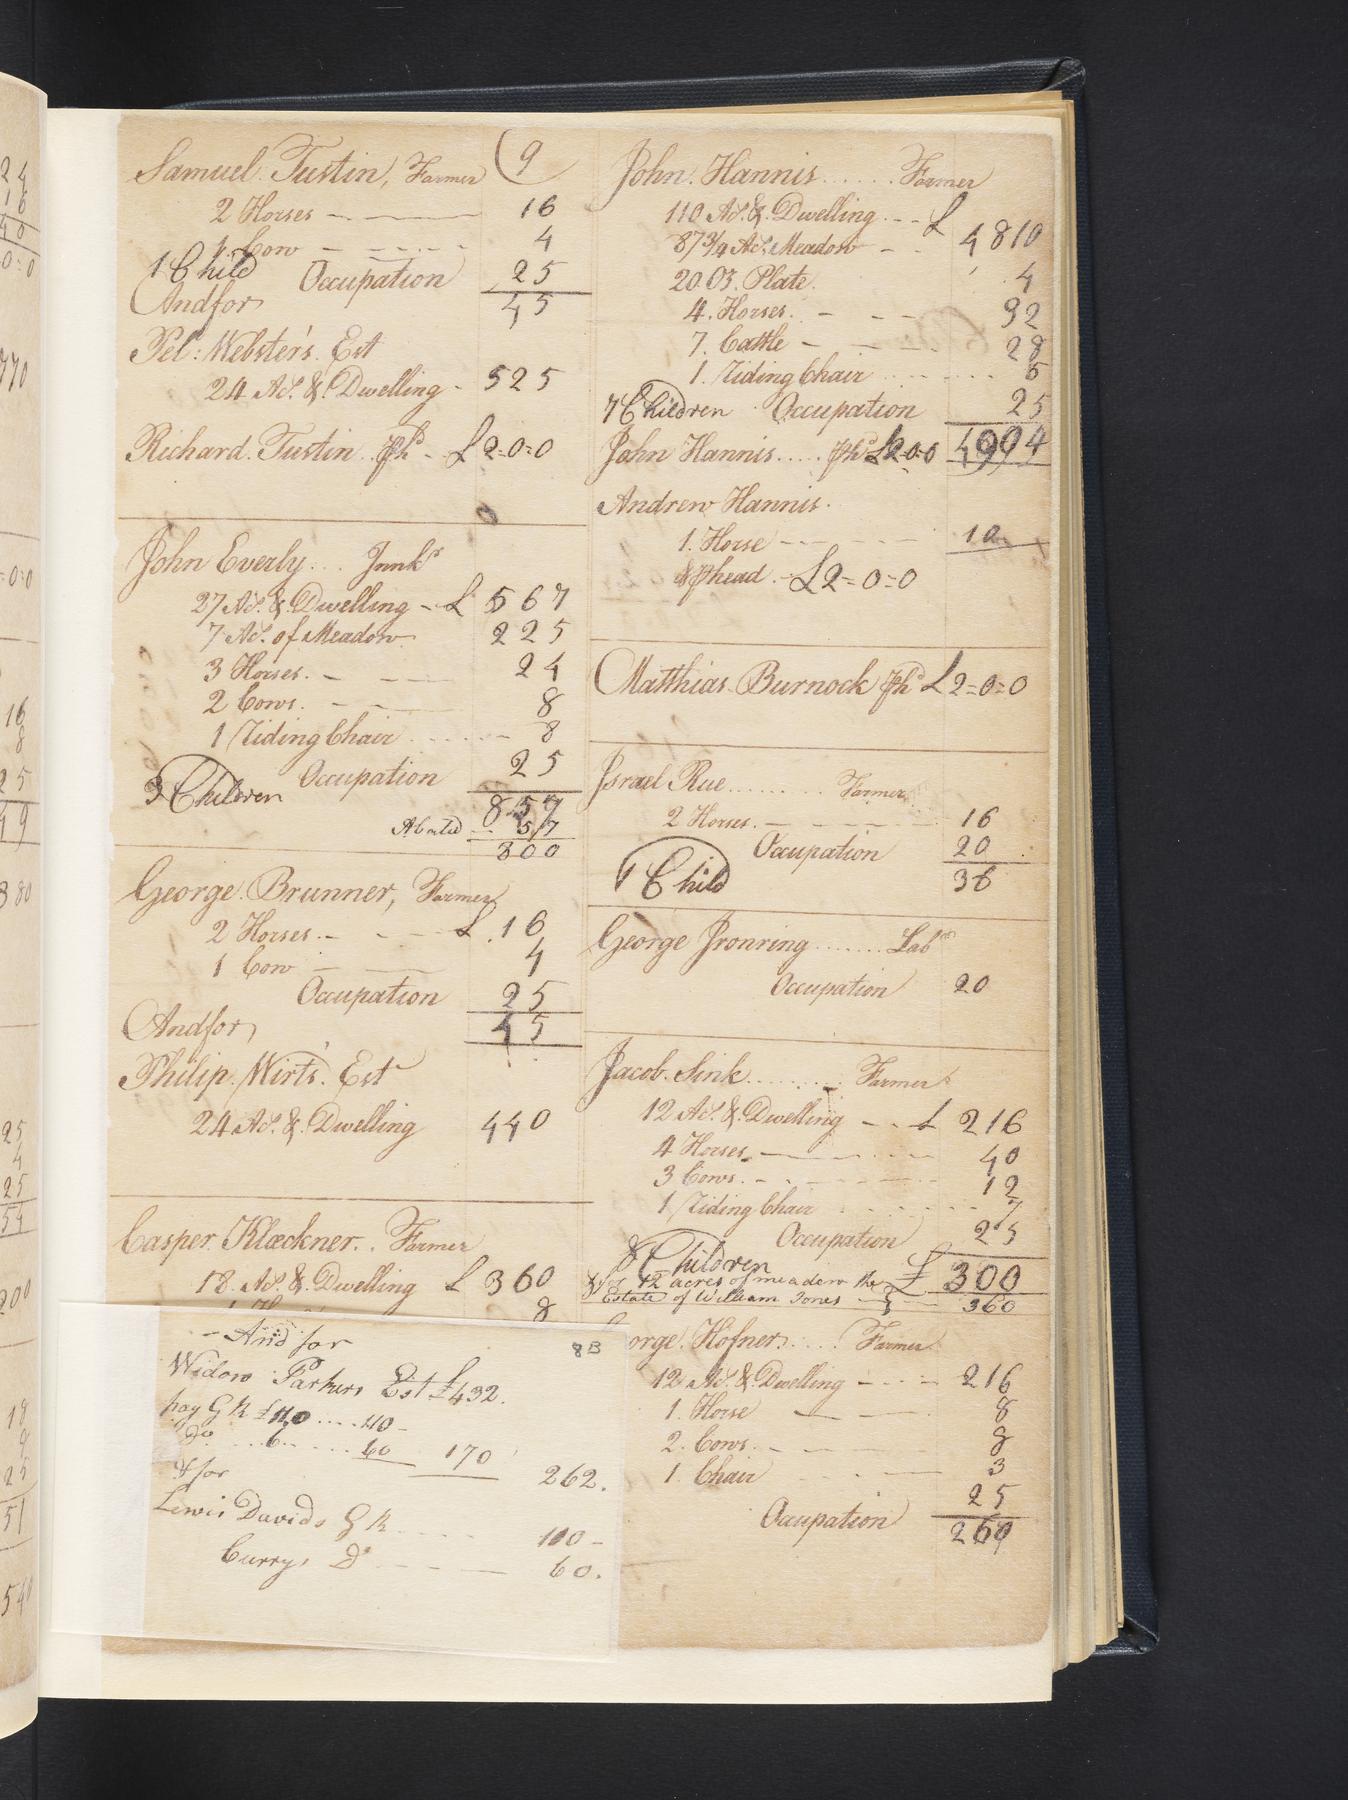 (9
Samuel Tustin, Farmer
2 Horses 16
1 Cow 4
1 Child Occupation 25
45
Andfor
Pel: Webster's Est
24 As. & Dwelling 525
Richard Tustin Phd £2=0=0
John Everly... Innkr
27 As. & Dwelling - £ 567
7 As. of Meadow 225
3 Horses. 24
2 Cows. 8
1 Riding Chair 8
Occupation 25
3 Children
857
Abated 57
800
George Brunner, Farmer
2 Horses £ 16
1 Cow 4
Occupation 25
45
Andfor
Philip Wirt's Est
24 As. & Dwelling 440
Casper Klæckner.. Farmer
18 As. & Dwelling £ 360
8
8B
- And for
Widow Parkers Est £432.
pay G R £110 .... 110 -
Do ... 6 ..... 60 170
262.
& for
Lewis Davids G R 110 -
Currys Do 60.
John Hannis...... Farmer
110 As. & Dwelling... £
87 3/4 As. Meadow - 4810
20 Oz. Plate 4
4 Horses. 32
7 Cattle 28
1 Riding Chair
7 Children Occupation 25
John Hannis..... Phd £2.0.0 4994
Andrew Hannis.
1 Horse 10
& Phead. £2=0=0
Matthias Burnock Phd £2=0=0
Israel Rue......... Farmer
2 Horses. 16
Occupation 20
1 Child 36
George Ironring....... Labr
Occupation 20
Jacob Sink.......... Farmer
12 As. & Dwelling - . . £ 216
4 Horses 40
3 Cows. 12
1 Riding Chair 7
Occupation 25
8 Children £ 300
& for 12 acres of meadow the
Estate of William Jones 360
orge Hofner.... Farmer
12 As. & Dwelling 216
1 Horse 8
2 Cows. 8
1 Chair 3
25
Occupation 260